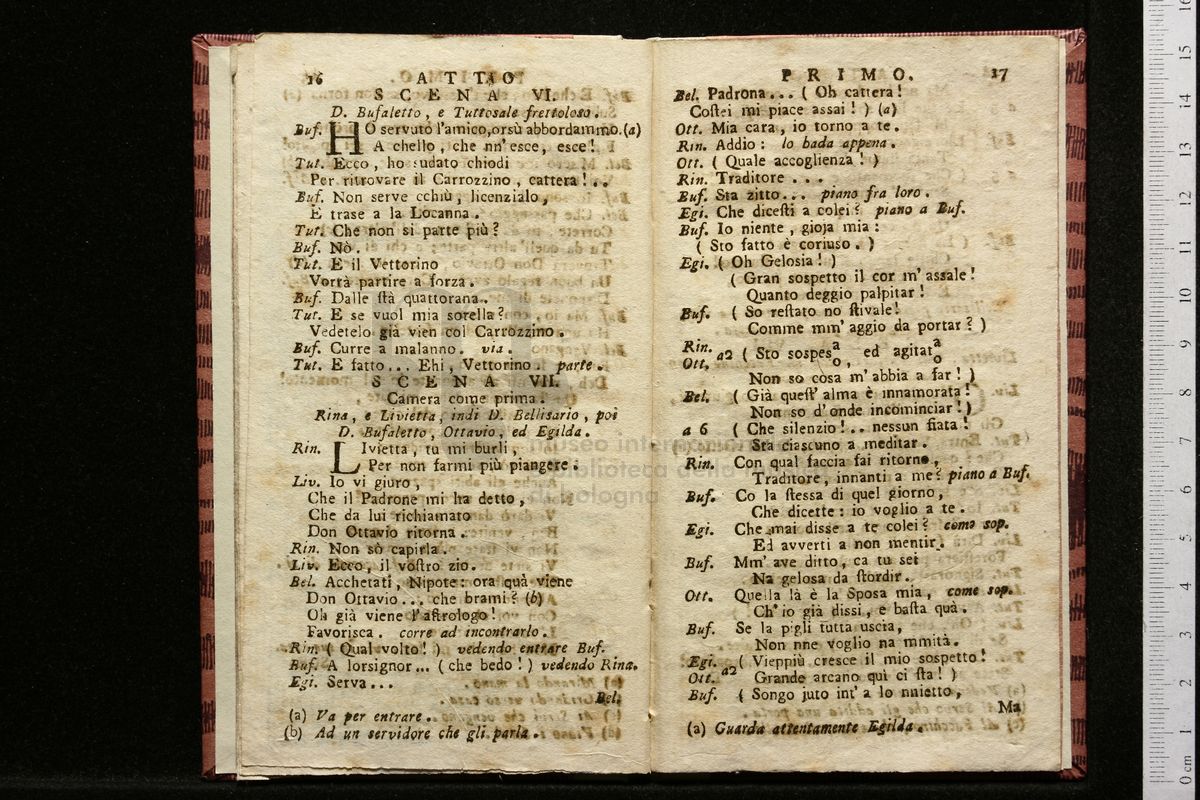 16 ATTO
SCENA VI.
D. Bufaletto, e Tuttosale frettoloso.
Buf. HO servuto l'amico, orsù abbordammo. (a)
A chello, che nn' esce, esce!
Tut. Ecco, ho sudato chiodi
Per ritrovare il Carrozzino, cattera!..
Buf. Non serve cchiù, licenzialo,
E trase a la Locanna.
Tut. Che non si parte più?
Buf. Nò.
Tut. E il Vettorino
Vorrà partire a forza.
Buf. Dalle ſtà quattorana.
Tut. E se vuol mia sorella?
Vedetelo già vien col Carrozzino.
Buf. Curre a malanno. via.
Tut. E fatto... Ehi, Vettorino parte.
SCENA VII.
Camera come prima.
Rina, e Livietta, indi D. Bellisario, poi
D. Bufaletto, Ottavio, ed Egilda.
Rin. LIvietta, tu mi burli,
Per non farmi più piangere.
Liv. Io vi giuro,
Che il Padrone mi ha detto,
Che da lui richiamato
Don Ottavio ritorna.
Rin. Non sò capirla.
Liv. Ecco, il voſtro zio.
Bel. Acchetati, Nipote: ora quà viene
Don Ottavio... che brami? (b)
Oh già viene l'aſtrologo!
Favorisca. corre ad incontrarlo.
Rin. ( Qual volto! ) vedendo entrare Buf.
Buf. A lorsignor... ( che bedo! ) vedendo Rina.
Egi. Serva...
Bel.
(a) Va per entrare.
(b) Ad un servidore che gli parla.
PRIMO. 17
Bel. Padrona... ( Oh cattera!
Coſtei mi piace assai! ) (a)
Ott. Mia cara, io torno a te.
Rin. Addio: lo bada appena.
Ott. ( Quale accoglienza! )
Rin. Traditore...
Buf. Sta zitto... piano fra loro.
Egi. Che diceſti a colei? piano a Buf.
Buf. Io niente, gioja mia:
( Sto fatto è coriuso. )
Egi. ( Oh Gelosia! )
( Gran sospetto il cor m' assale!
Quanto deggio palpitar!
Buf. ( So reſtato no ſtivale!
Comme mm' aggio da portar? )
Rin. Ott. a2 ( Sto sospes a/o, ed agitat a/o
Non so cosa m' abbia a far! )
Bel. ( Già queſt' alma è innamorata!
Non so d' onde incominciar!)
a 6 ( Che silenzio!.. nessun fiata!
Sta ciascuno a meditar.
Rin. Con qual faccia fai ritorno,
Traditore, innanti a me? piano a Buf.
Buf. Co la ſtessa di quel giorno,
Che dicette: io voglio a te.
Egi. Che mai disse a te colei? come sop.
Ed avverti a non mentir.
Buf. Mm' ave ditto, ca tu sei
Na gelosa da ſtordir.
Ott. Quella là è la Sposa mia, come sop.
Ch' io già dissi, e baſta quà.
Buf. Se la pigli tutta uscia,
Non nne voglio na mmità.
Egi. Ott. a2 ( Vieppiù cresce il mio sospetto!
Grande arcano quì ci ſta! )
Buf. ( Songo juto int' a lo nnietto,
Ma
(a) Guarda attentamente Egilda.